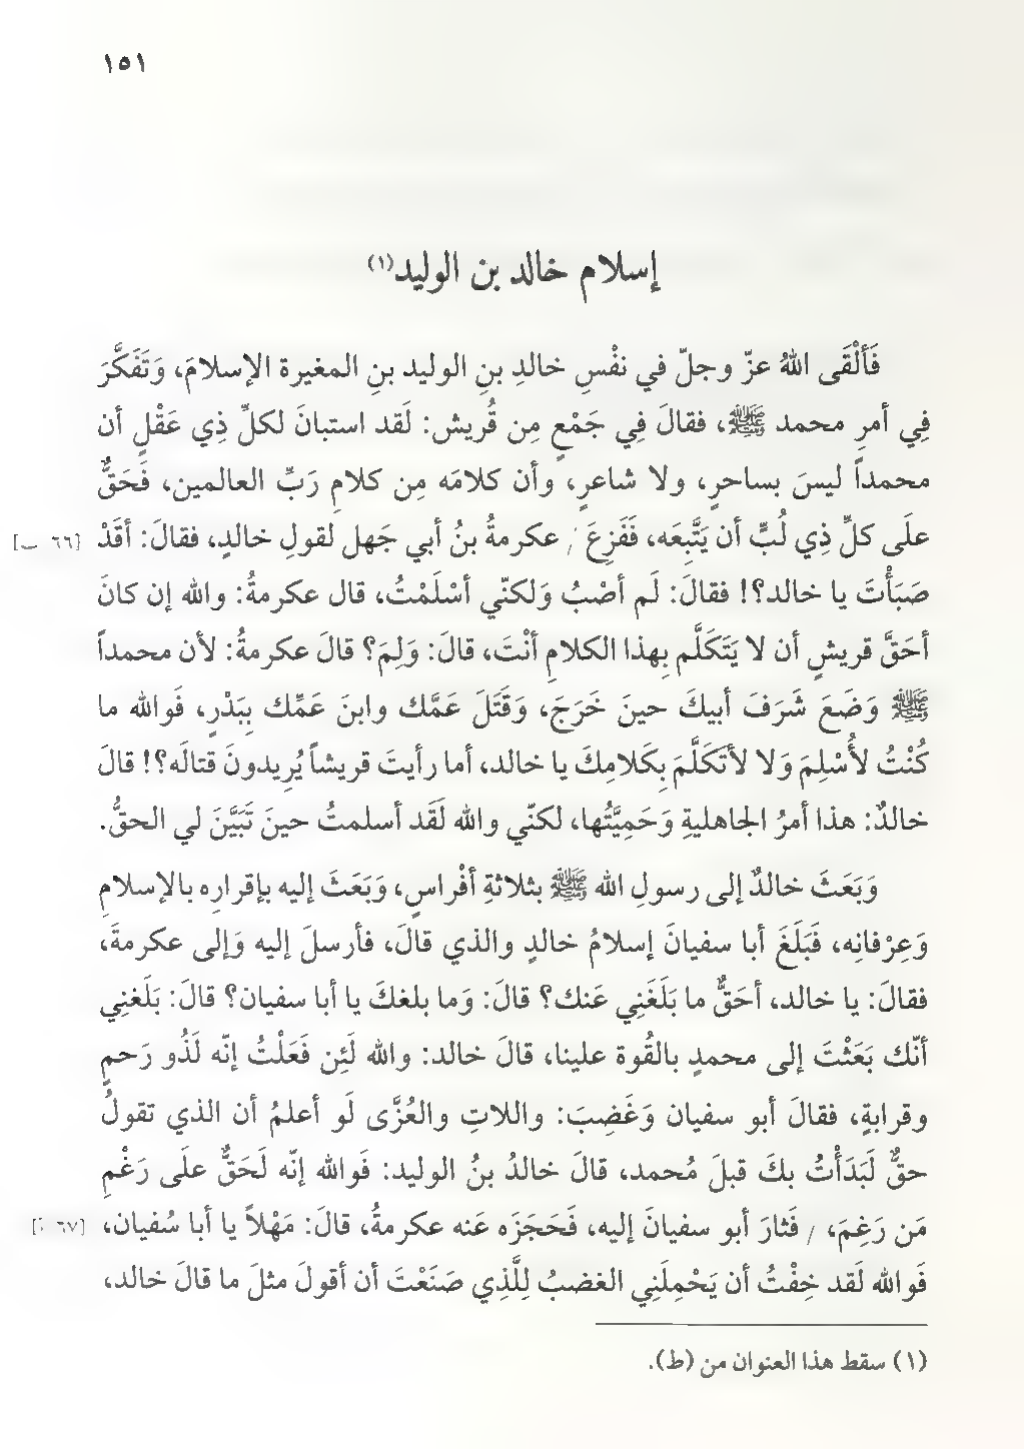 ١٥١
إسلام خالد بن الوليد(١)
فَأَلْقَى اللهُ عزّ وجلّ في نفْسِ خالدِ بنِ الوليد بنِ المغيرة الإسلامَ، وَتَفَكَّرَ
فِي أمرِ محمد ﷺ، فقالَ فِي جَمْعٍ مِن قُريش: لَقد استبانَ لكلِّ ذِي عَقْلٍ أن
محمداً ليسَ بساحرٍ، ولا شاعرٍ، وأن كلامَه مِن كلامِ رَبِّ العالمين، فَحَقٌّ
علَى كلِّ ذِي لُبٍّ أن يَتَّبِعَه، فَفَزِعَ / عكرمةُ بنُ أبي جَهل لقولِ خالدٍ، فقالَ: أقَدْ [٦٦ ب]
صَبَأْتَ يا خالد؟! فقالَ: لَم أصْبُ وَلكنّي أسْلَمْتُ، قال عكرمةُ: والله إن كانَ
أحَقَّ قريشٍ أن لا يَتَكَلَّم بِهذا الكلامِ أنْتَ، قالَ: وَلِمَ؟ قالَ عكرمةُ: لأن محمداً
ﷺ وَضَعَ شَرَفَ أبيكَ حينَ خَرَجَ، وَقَتَلَ عَمَّك وابنَ عَمِّك بِبَدْرٍ، فَوالله ما
كُنْتُ لأُسْلِمَ وَلا لأتَكَلَّمَ بِكَلامِكَ يا خالد، أما رأيتَ قريشاً يُرِيدونَ قتالَه؟! قالَ
خالدٌ: هذا أمرُ الجاهليةِ وَحَمِيَّتُها، لكنّي والله لَقَد أسلمتُ حينَ تَبَيَّنَ لي الحقُّ.
وَبَعَثَ خالدٌ إلى رسولِ الله ﷺ بثلاثةِ أفْراسٍ، وَبَعَثَ إليه بإقرارِه بالإسلامِ
وَعِرْفانِه، فَبَلَغَ أبا سفيانَ إسلامُ خالدٍ والذي قالَ، فأرسلَ إليه وَإلى عكرمةَ،
فقالَ: يا خالد، أحَقٌّ ما بَلَغَنِي عَنك؟ قالَ: وَما بلغكَ يا أبا سفيان؟ قالَ: بَلَغنِي
أنّك بَعَثْتَ إلى محمدٍ بالقُوة علينا، قالَ خالد: والله لَئِن فَعَلْتُ إنّه لَذُو رَحمٍ
وقرابةٍ، فقالَ أبو سفيان وَغَضِبَ: واللاتِ والعُزَّى لَو أعلمُ أن الذي تقولُ
حقٌّ لَبَدَأْتُ بكَ قبلَ مُحمد، قالَ خالدُ بنُ الوليد: فَوالله إنّه لَحَقٌّ علَى رَغْمِ
مَن رَغِمَ، / فَثارَ أبو سفيانَ إليه، فَحَجَزَه عَنه عكرمةُ، قالَ: مَهْلاً يا أبا سُفيان، [٦٧ أ]
فَوالله لَقد خِفْتُ أن يَحْمِلَنِي الغضبُ لِلَّذِي صَنَعْتَ أن أقولَ مثلَ ما قالَ خالد،
(١) سقط هذا العنوان من (ط).